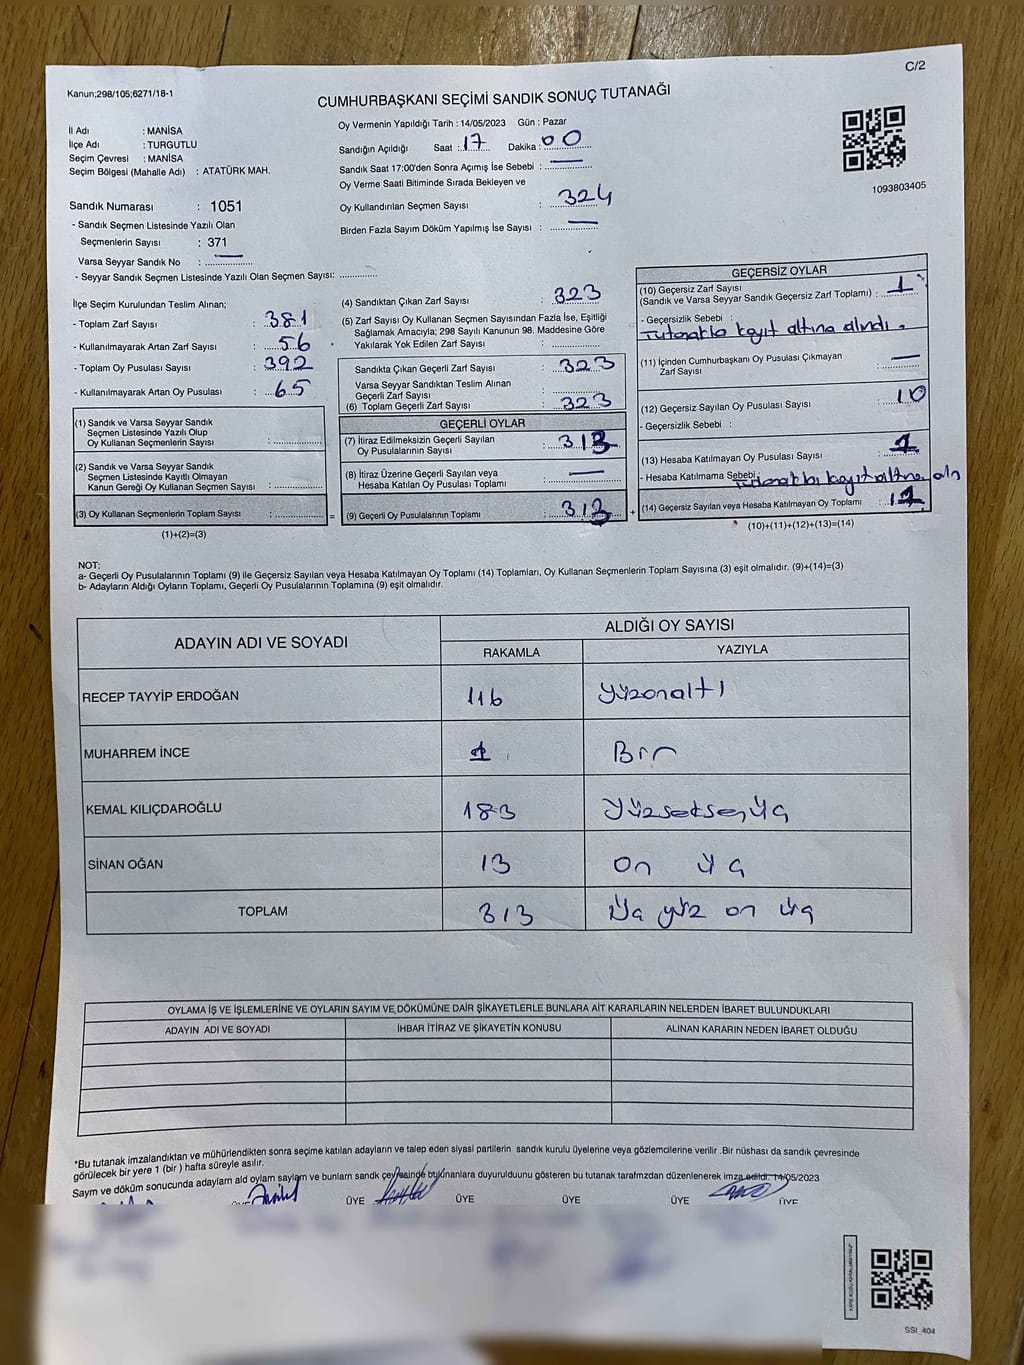 C/2
Kanun;298/105;6271/18-1
CUMHURBAŞKANI SEÇİMİ SANDIK SONUÇ TUTANAĞI
İl Adı : MANİSA
İlçe Adı : TURGUTLU
Seçim Çevresi : MANİSA
Seçim Bölgesi (Mahalle Adı) : ATATÜRK MAH.
Sandık Numarası : 1051
- Sandık Seçmen Listesinde Yazılı Olan
Seçmenlerin Sayısı : 371
Varsa Seyyar Sandık No : —
- Seyyar Sandık Seçmen Listesinde Yazılı Olan Seçmen Sayısı: ............
Oy Vermenin Yapıldığı Tarih : 14/05/2023 Gün : Pazar
Sandığın Açıldığı Saat : 17 Dakika : 00
Sandık Saat 17:00'den Sonra Açımış İse Sebebi : —
Oy Verme Saati Bitiminde Sırada Bekleyen ve
Oy Kullandırılan Seçmen Sayısı : 324
Birden Fazla Sayım Döküm Yapılmış İse Sayısı : —
1093803405
İlçe Seçim Kurulundan Teslim Alınan;
- Toplam Zarf Sayısı : 381
- Kullanılmayarak Artan Zarf Sayısı : 56
- Toplam Oy Pusulası Sayısı : 392
- Kullanılmayarak Artan Oy Pusulası : 65
(1) Sandık ve Varsa Seyyar Sandık
Seçmen Listesinde Yazılı Olup
Oy Kullanan Seçmenlerin Sayısı : ............
(2) Sandık ve Varsa Seyyar Sandık
Seçmen Listesinde Kayıtlı Olmayan
Kanun Gereği Oy Kullanan Seçmen Sayısı : ............
(3) Oy Kullanan Seçmenlerin Toplam Sayısı : ............ =
(1)+(2)=(3)
(4) Sandıktan Çıkan Zarf Sayısı : 323
(5) Zarf Sayısı Oy Kullanan Seçmen Sayısından Fazla İse, Eşitliği
Sağlamak Amacıyla; 298 Sayılı Kanunun 98. Maddesine Göre
Yakılarak Yok Edilen Zarf Sayısı : ............
Sandıkta Çıkan Geçerli Zarf Sayısı : 323
Varsa Seyyar Sandıktan Teslim Alınan
Geçerli Zarf Sayısı : ............
(6) Toplam Geçerli Zarf Sayısı : 323
GEÇERLİ OYLAR
(7) İtiraz Edilmeksizin Geçerli Sayılan
Oy Pusulalarının Sayısı : 313
(8) İtiraz Üzerine Geçerli Sayılan veya
Hesaba Katılan Oy Pusulası Toplamı : —
(9) Geçerli Oy Pusulalarının Toplamı : 313 +
GEÇERSİZ OYLAR
(10) Geçersiz Zarf Sayısı
(Sandık ve Varsa Seyyar Sandık Geçersiz Zarf Toplamı) : 1
- Geçersizlik Sebebi :
Tutanakla kayıt altına alındı.
(11) İçinden Cumhurbaşkanı Oy Pusulası Çıkmayan
Zarf Sayısı : —
(12) Geçersiz Sayılan Oy Pusulası Sayısı : 10
- Geçersizlik Sebebi :
(13) Hesaba Katılmayan Oy Pusulası Sayısı : 1
- Hesaba Katılmama Sebebi : kayıt altına alın
(14) Geçersiz Sayılan veya Hesaba Katılmayan Oy Toplamı : 11
(10)+(11)+(12)+(13)=(14)
NOT:
a- Geçerli Oy Pusulalarının Toplamı (9) ile Geçersiz Sayılan veya Hesaba Katılmayan Oy Toplamı (14) Toplamları, Oy Kullanan Seçmenlerin Toplam Sayısına (3) eşit olmalıdır. (9)+(14)=(3)
b- Adayların Aldığı Oyların Toplamı, Geçerli Oy Pusulalarının Toplamına (9) eşit olmalıdır.
ADAYIN ADI VE SOYADI
ALDIĞI OY SAYISI
RAKAMLA YAZIYLA
RECEP TAYYİP ERDOĞAN 116 Yüzonaltı
MUHARREM İNCE 1 Bir
KEMAL KILIÇDAROĞLU 183 Yüzseksenüç
SİNAN OĞAN 13 On üç
TOPLAM 313 Üç yüz on üç
OYLAMA İŞ VE İŞLEMLERİNE VE OYLARIN SAYIM VE DÖKÜMÜNE DAİR ŞİKAYETLERLE BUNLARA AİT KARARLARIN NELERDEN İBARET BULUNDUKLARI
ADAYIN ADI VE SOYADI İHBAR İTİRAZ VE ŞİKAYETİN KONUSU ALINAN KARARIN NEDEN İBARET OLDUĞU
*Bu tutanak imzalandıktan ve mühürlendikten sonra seçime katılan adayların ve talep eden siyasi partilerin sandık kurulu üyelerine veya gözlemcilerine verilir .Bir nüshası da sandık çevresinde
görülecek bir yere 1 (bir ) hafta süreyle asılır.
Sayım ve döküm sonucunda adayların ald oyların sayların ve bunların sandk çevresinde bulunanlara duyurulduunu gösteren bu tutanak tarafmzdan düzenlenerek imza edildi. 14/05/2023
ÜYE ÜYE ÜYE ÜYE ÜYE ÜYE
SSI_404